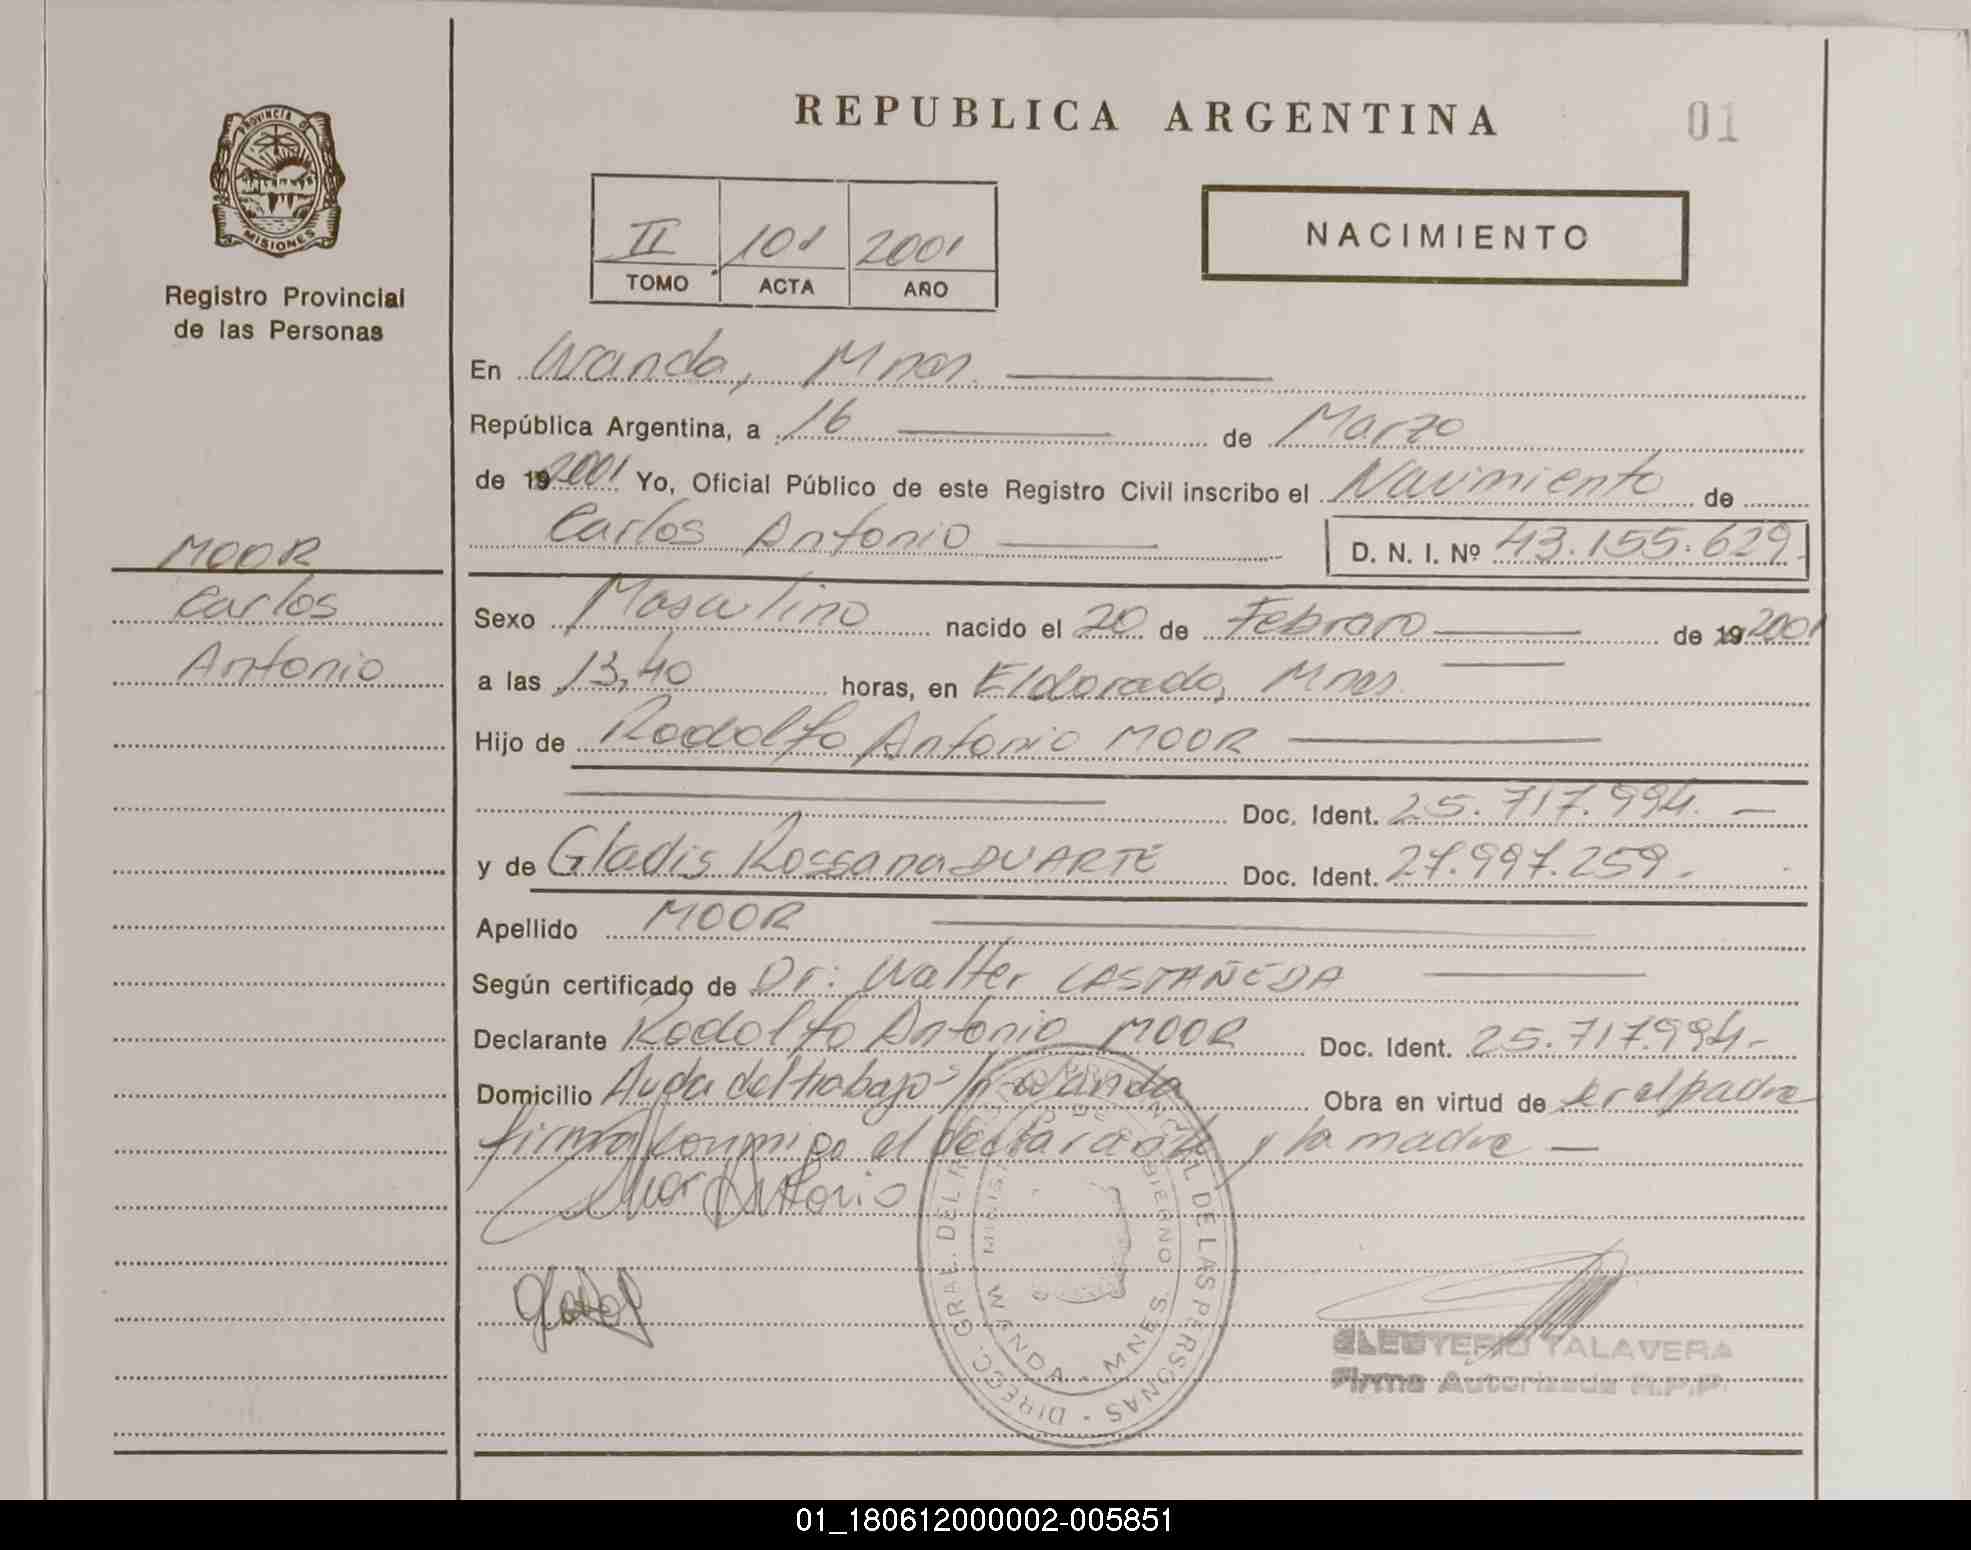 REPUBLICA ARGENTINA
01
PROVINCIA DE
MISIONES
Registro Provincial
de las Personas
II 101 2001
TOMO ACTA AÑO
NACIMIENTO
En Wanda, Mnes.
República Argentina, a 16 de Marzo
de 192001 Yo, Oficial Público de este Registro Civil inscribo el Nacimiento de
Carlos Antonio D. N. I. Nº 43.155.629.
MOOR
Carlos
Antonio
Sexo Masculino nacido el 20 de Febrero de 19 2001
a las 13,40 horas, en Eldorado, Mnes.
Hijo de Rodolfo Antonio MOOR
Doc. Ident. 25.717.994. -
y de Gladis Rossana DUARTE Doc. Ident. 27.997.259.-
Apellido MOOR
Según certificado de Dr: Walter CASTAÑEDA
Declarante Rodolfo Antonio MOOR Doc. Ident. 25.717.994-
Domicilio Avda del trabajo Wanda Obra en virtud de ser el padre
firma conmigo el declarante y la madre —
Moor Antonio
DIRECC. GRAL. DEL DE LAS PERSONAS
WANDA - MNES.
ELEUTERIO TALAVERA
Firma Autorizada R.P.P.
01_180612000002-005851